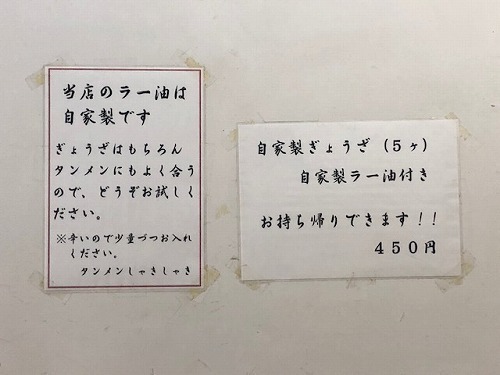 当店のラー油は
自家製です
ぎょうざはもちろん
タンメンにもよく合う
ので、どうぞお試しく
ださい。
※辛いので少量づつお入れ
ください。
タンメンしゃきしゃき
自家製ぎょうざ(5ヶ)
自家製ラー油付き
お持ち帰りできます!!
450円